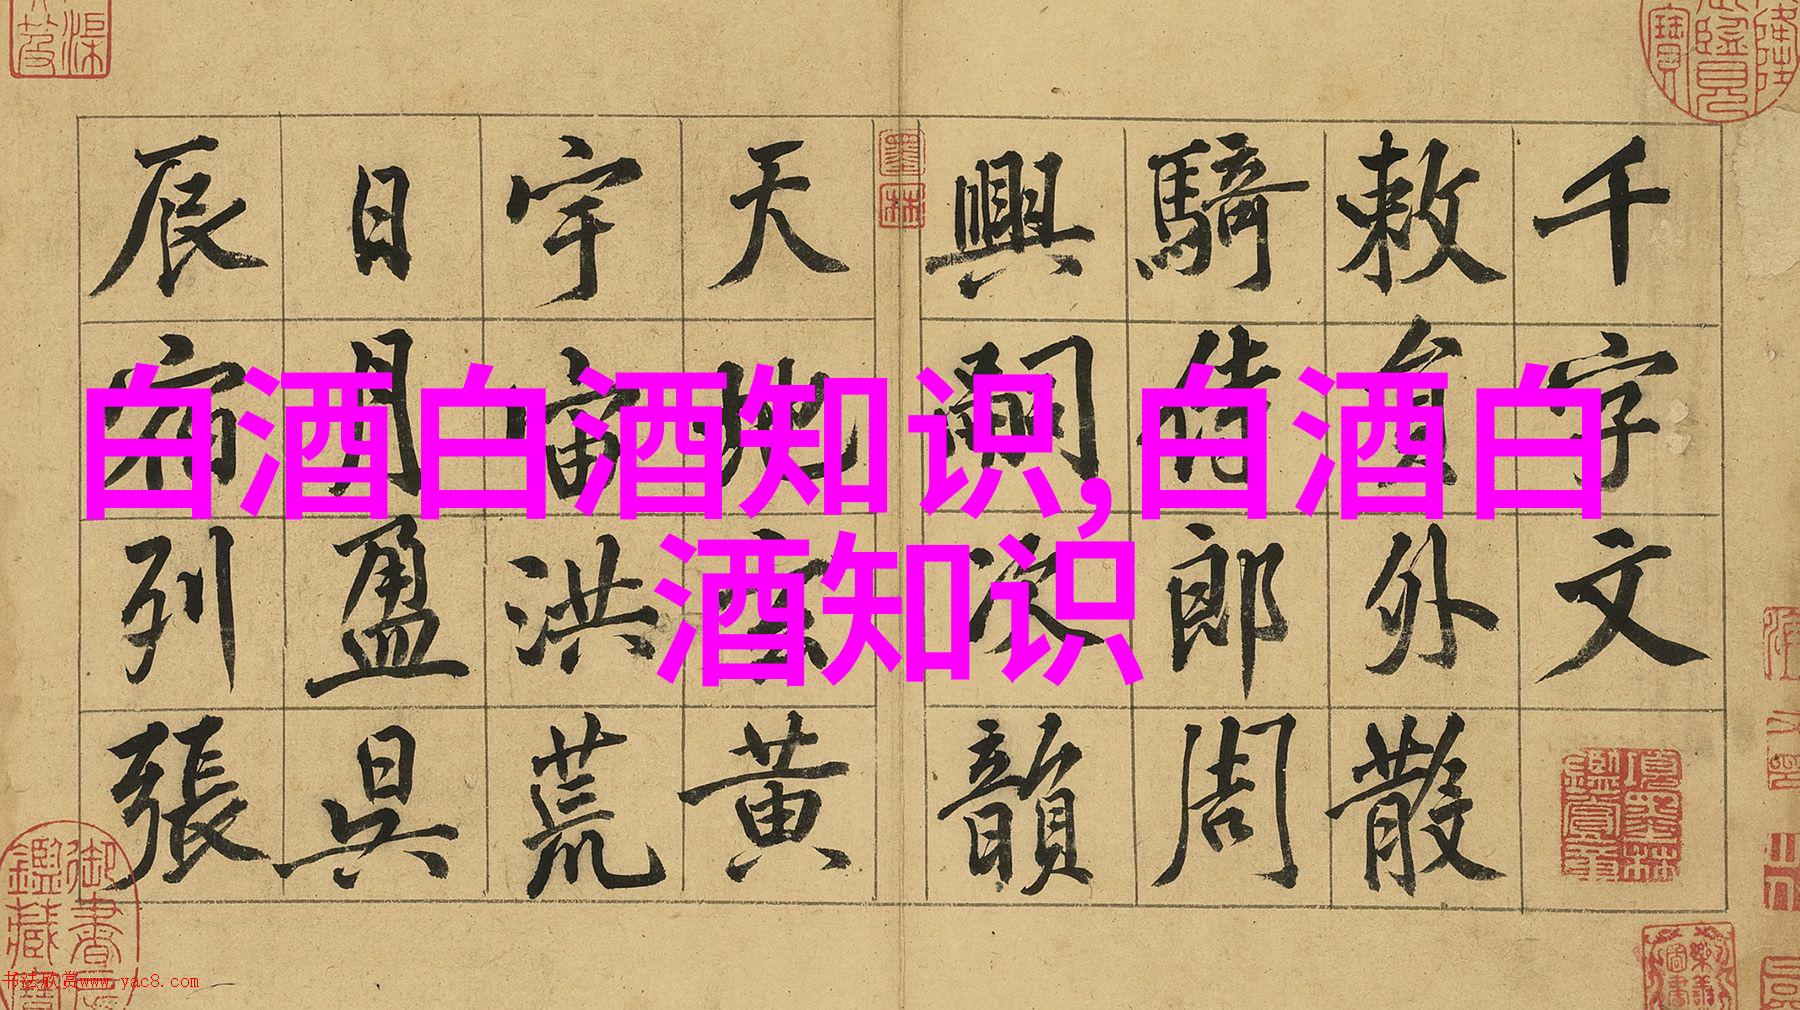 白酒白酒知识,白酒白
酒知识
千字文
敕員外散
騎侍郎周
興嗣次韻
天地玄黃
宇宙洪荒
日月盈昃
辰宿列張
墨林
书法欣赏www.yac8.com